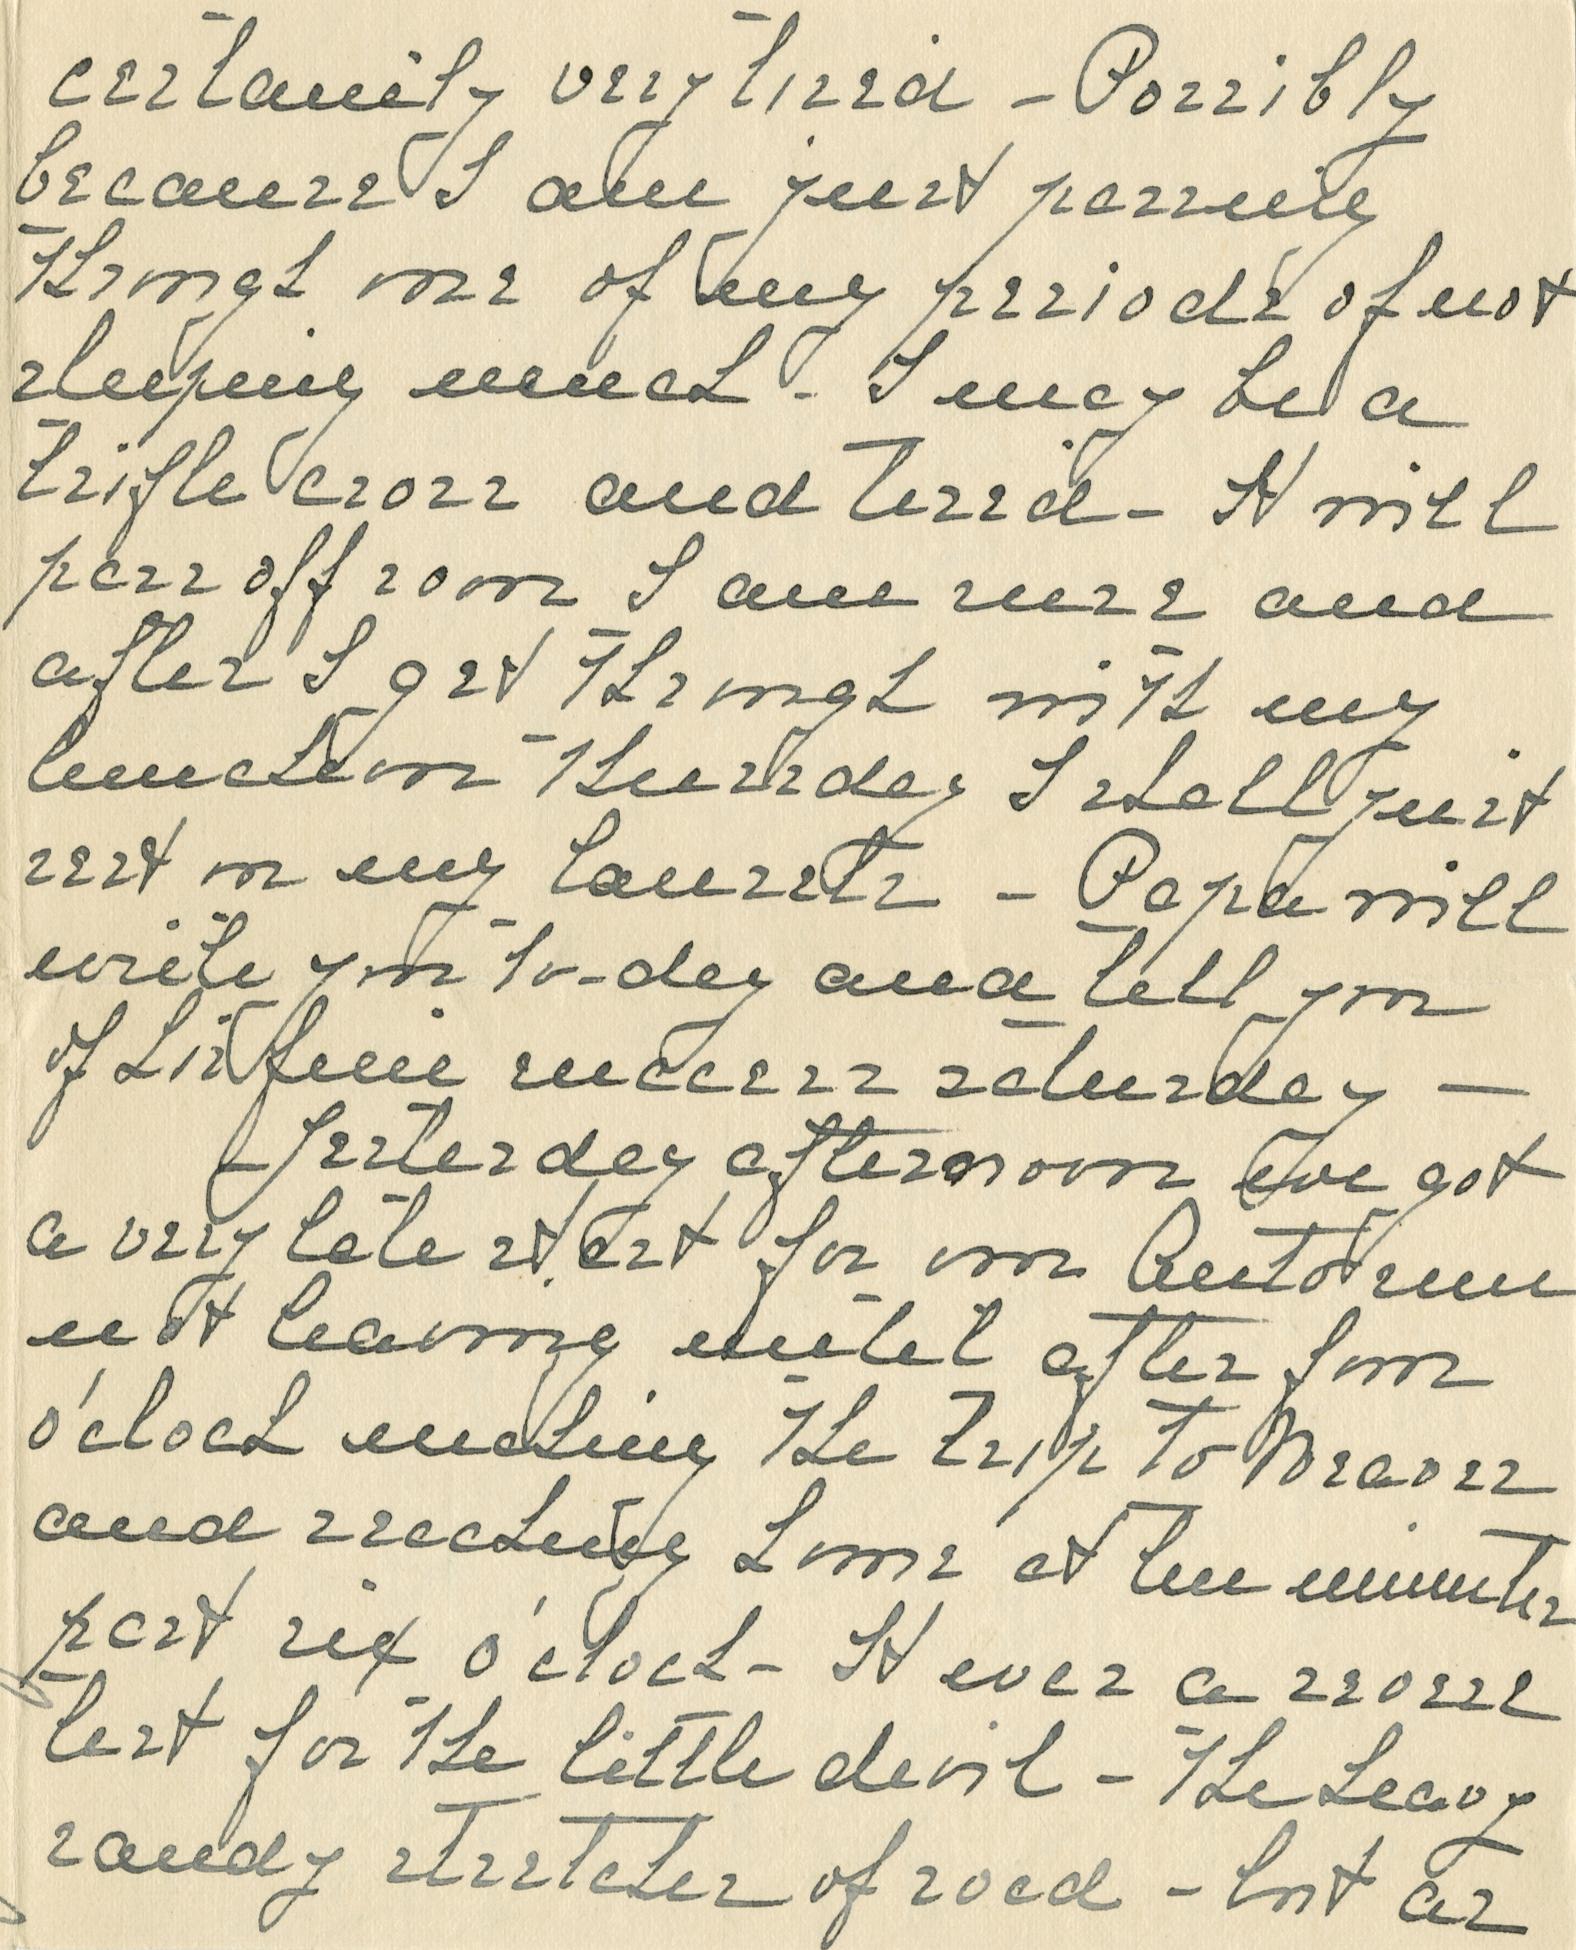 certainly very tired - Possibly
because I am just passing
through one of my periods of not
sleeping much - I may be a
trifle cross and tired - It will
pass off soon I am sure and
after I get through with my
luncheon Thursday I shall just
rest on my laurels - Papa will
write you to-day and tell you
of his fine success saturday -
Yesterday afternoon we got
a very late start for our Auto run
not leaving until after four
o'clock making the trip to
and reaching home at ten minutes
past six o'clock - It was a severe
test for the little devil - the heavy
sandy stretches of road - but as